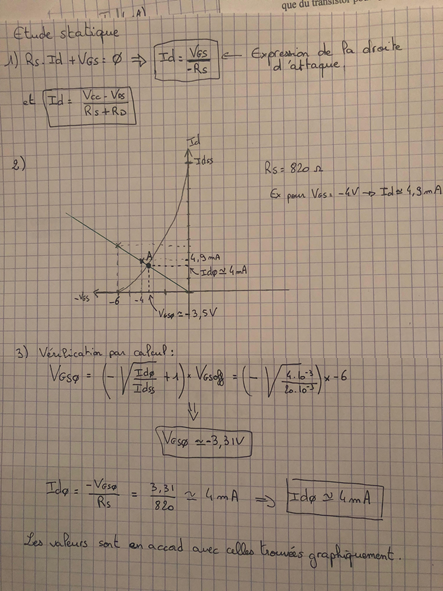 que du transistor p
Etude statique
1) Rs.Id + VGS = 0 ⇒ Id = VGS / -RS ← Expression de la droite
d'attaque.
et Id = Vcc - VDS / RS + RD
Id
Idss
2)
Rs = 820 Ω
Ex pour VGS = -4V → Id ≃ 4,9 mA
A
4,9 mA
Idφ ≃ 4 mA
-VGS
-6
-4
VGSφ ≃ -3,5V
3) Vérification par calcul :
VGSφ = (-√(Idφ / Idss) + 1) × VGSoff = (-√(4.10⁻³ / 20.10⁻³)) × -6
⇓
VGSφ ≃ -3,31V
Idφ = -VGSφ / RS = 3,31 / 820 ≃ 4 mA ⇒ Idφ ≃ 4 mA
Les valeurs sont en accad avec celles trouvées graphiquement.